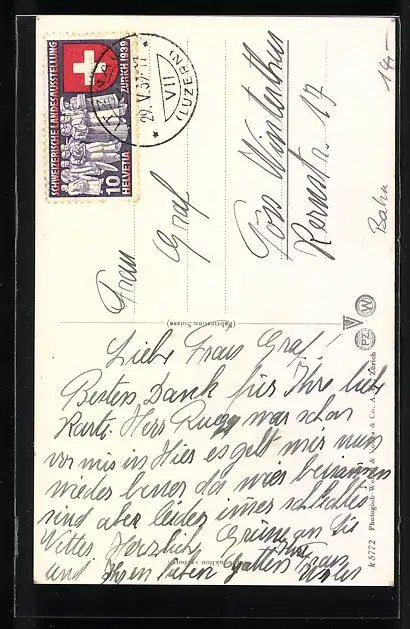 SCHWEIZERISCHE LANDESAUSSTELLUNG
ZÜRICH 1939
10 HELVETIA
29. V. 39
VII
(LUZERN)
14.-
Bahn
Frau
Graf
Töss Winterthur
Kernstr. 17
(Fabrication Suisse)
Liebe Frau Graf!
Besten Dank für Ihre liebe
Karte. Herr Ruegg war schon
vor mir in Hier es geht mir nun
wieder besser da wir beisammen
sind aber leider immer schlechtes
Wetter. Herzlich Grüsse an Sie
und Ihren lieben Gatten Frau
k 6772 Photoglob & Co. A. Zürich
PZ
V
W